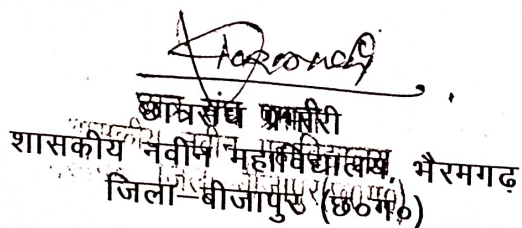 छात्रसंघ प्रभारी
शासकीय नवीन महाविद्यालय, भैरमगढ़
जिला–बीजापुर (छ०ग०)